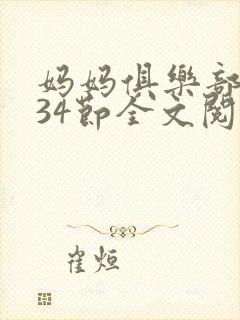 妈妈俱樂部
34節全文閱
崔烜